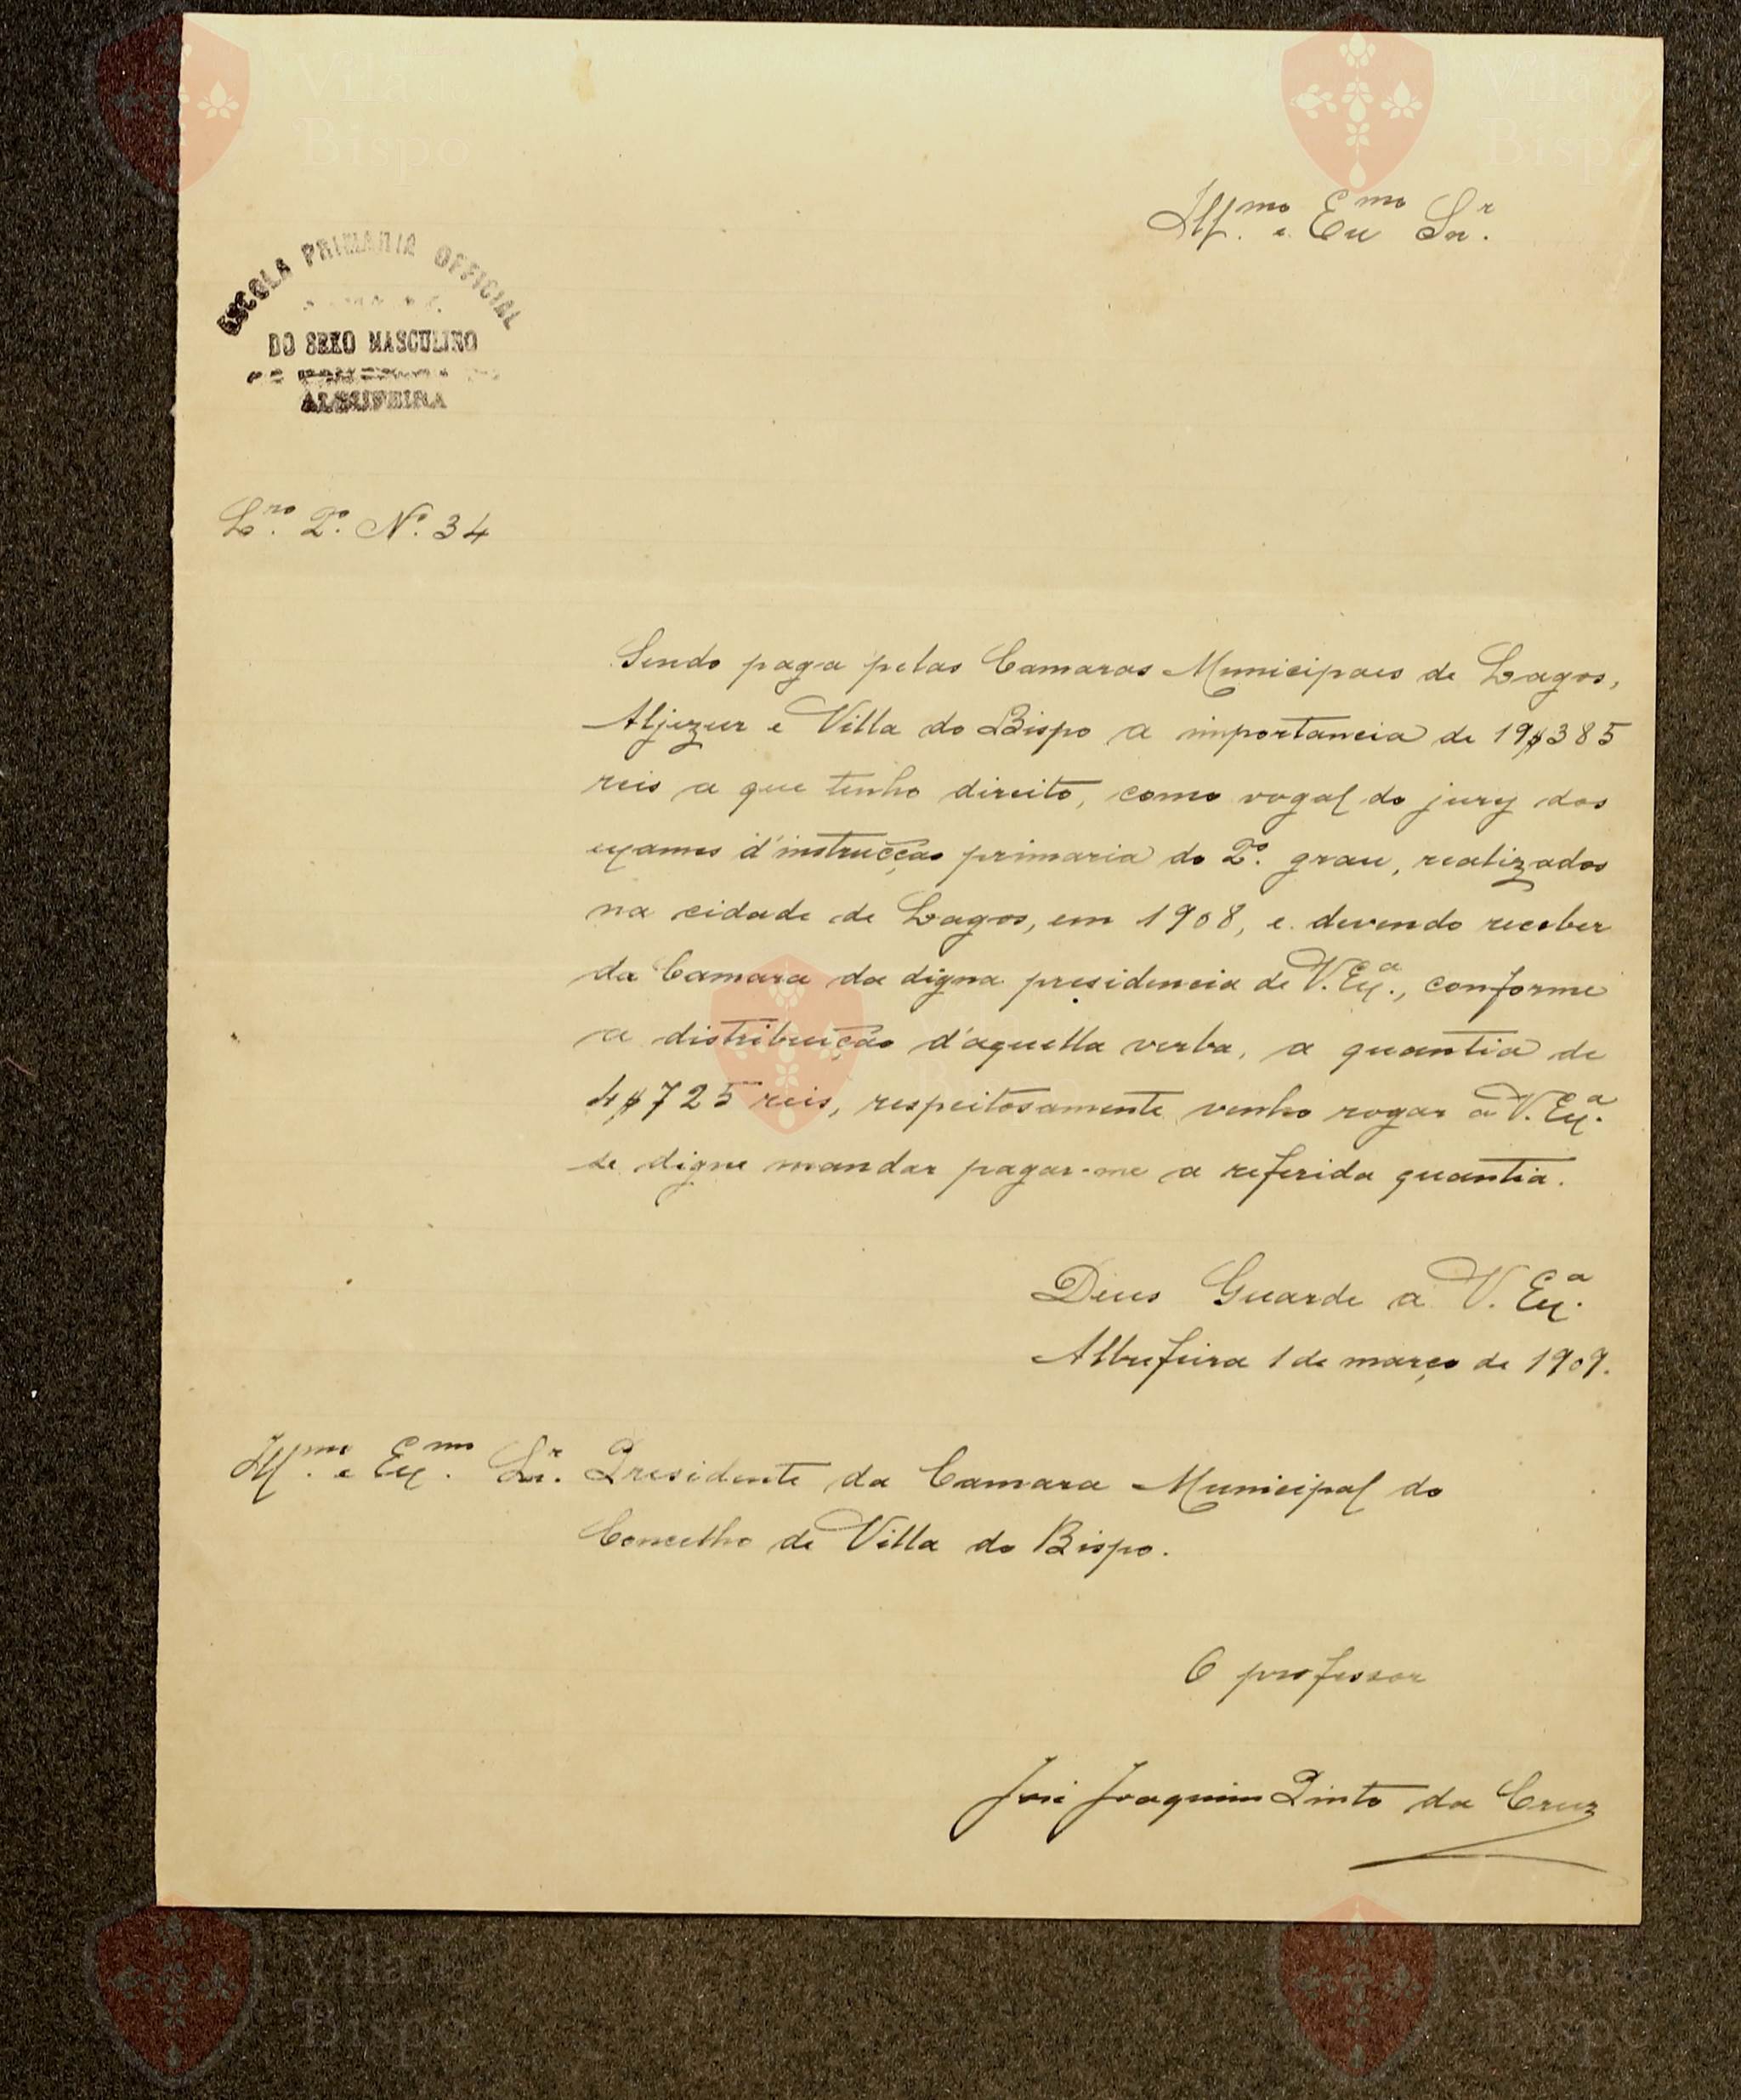 Ill.mo e Ex.mo Sn.r
ESCOLA PRIMARIA OFFICIAL
DO SEXO MASCULINO
ALBUFEIRA
L.ro 2.o N.o 34
Sendo paga pelas Camaras Municipaes de Lagos,
Aljezur e Villa do Bispo a importancia de 19$385
reis a que tenho direito, como vogal do jury dos
exames d'instrucção primaria do 2.o grau, realizados
na cidade de Lagos, em 1908, e devendo receber
da Camara da digna presidencia de V. Ex.a, conforme
a distribuição d'aquella verba, a quantia de
4$725 reis, respeitosamente venho rogar a V. Ex.a
se digne mandar pagar-me a referida quantia.
Deus Guarde a V. Ex.a
Albufeira 1 de março de 1909.
Ill.mo e Ex.mo Sr. Presidente da Camara Municipal do
Concelho de Villa do Bispo.
O professor
José Joaquim Pinto da Cruz
Vila do
Bispo
Vila do
Bispo
Vila do
Bispo
Vila do
Bispo
Vila do
Bispo